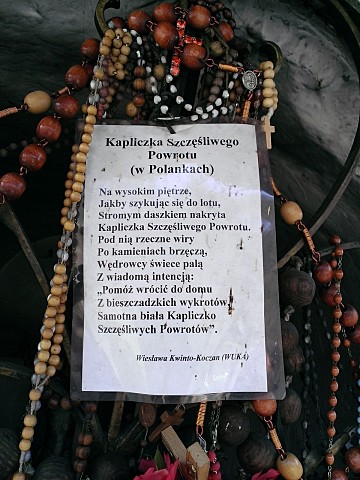 Kapliczka Szczęśliwego
Powrotu
(w Polankach)
Na wysokim piętrze,
Jakby szykując się do lotu,
Stromym daszkiem nakryta
Kapliczka Szczęśliwego Powrotu.
Pod nią rzeczne wiry
Po kamieniach brzęczą,
Wędrowcy świece palą
Z wiadomą intencją:
„Pomóż wrócić do domu
Z bieszczadzkich wykrotów,
Samotna biała Kapliczko
Szczęśliwych Powrotów”.
Wiesława Kwinto-Koczan (WUKA)